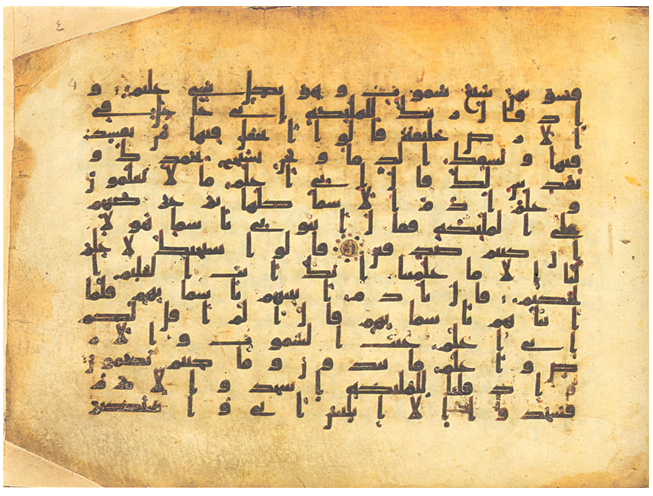 ٤
4
فسويهن سبع سموت و هو بكل شيء عليم و
اذ قال ربك للملئكة اني جاعل في
الارض خليفة قالوا اتجعل فيها من يفسد
فيها و يسفك الدما و نحن نسبح بحمدك و
نقدس لك قال اني اعلم ما لا تعلمون
و علم ادم الاسما كلها ثم عرضهم
على الملئكة فقال انبوني باسما هولا
ان كنتم صدقين قالوا سبحنك لا علم
لنا الا ما علمتنا انك انت العليم ا
لحكيم قال يادم انبيهم باسمايهم فلما
انباهم باسمايهم قال الم اقل لكم
اني اعلم غيب السموت و الار
ض و اعلم ما تبدون و ما كنتم تكتمون
و اذ قلنا للملئكة اسجدوا لادم
فسجدوا الا ابليس ابى و استكبر